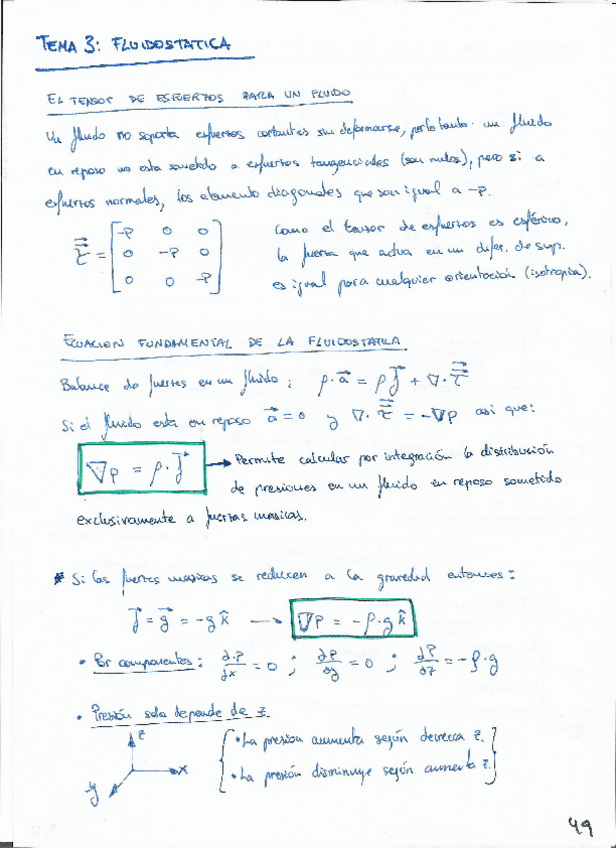 TEMA 3: FLUIDOSTATICA
EL TENSOR DE ESFUERZOS PARA UN FLUIDO
Un fluido no soporta esfuerzos cortantes sin deformarse, por lo tanto un fluido
en reposo no esta sometido a esfuerzos tangenciales (son nulos), pero si a
esfuerzos normales, los elemento diagonales que son igual a -p.
τ = [ -P 0 0
0 -P 0
0 0 -P ]
Como el tensor de esfuerzos es esférico,
la fuerza que actua en un difer. de sup.
es igual para cualquier orientación (isotropia).
ECUACION FUNDAMENTAL DE LA FLUIDOSTATICA
Balance de fuerzas en un fluido: ρ·a = ρf + ∇·τ
Si el fluido esta en reposo a = 0 y ∇·τ = -∇p asi que:
∇p = ρ·f → Permite calcular por integración la distribución
de presiones en un fluido en reposo sometido
exclusivamente a fuerzas masicas.
* Si las fuerzas masicas se reducen a la gravedad entonces:
f = g = -g k̂ → ∇P = -ρ·g k̂
• Por componentes: ∂P/∂x = 0 ; ∂P/∂y = 0 ; ∂P/∂z = -ρ·g
• Presión solo depende de z.
z
x
y
• La presion aumenta según decrezca z.
• La presión disminuye según aumenta z.
49